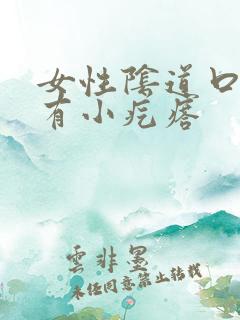 女性陰道口
有小疙瘩
雲非墨
未經同意禁止轉載